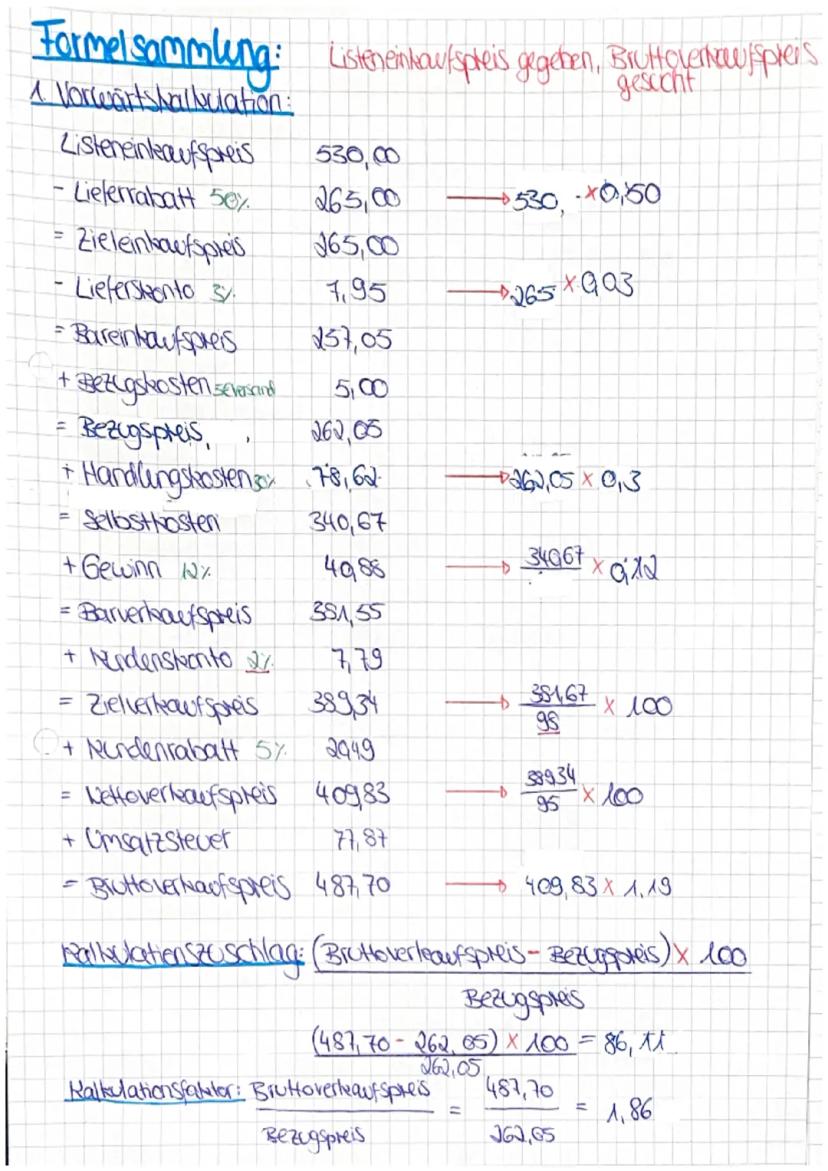 Formelsammlung: Listeneinkaufspreis gegeben, Bruttoverkaufspreis
gesucht
1. Vorwärtskalkulation:
Listeneinkaufspreis 530,00
- Lieferrabatt 50% 265,00 → 530, - × 0,50
= Zieleinkaufspreis 265,00
- Lieferskonto 3% 7,95 → 265 × 0,03
= Bareinkaufspreis 257,05
+ Bezugskosten 5€ Versand 5,00
= Bezugspreis 262,05
+ Handlungskosten 30% 78,62 → 262,05 × 0,3
= Selbstkosten 340,67
+ Gewinn 12% 40,88 → 340,67 × 0,12
= Barverkaufspreis 381,55
+ Kundenskonto 2% 7,79
= Zielverkaufspreis 389,34 → 381,67 / 98 × 100
+ Kundenrabatt 5% 20,49
= Nettoverkaufspreis 409,83 → 389,34 / 95 × 100
+ Umsatzsteuer 77,87
= Bruttoverkaufspreis 487,70 → 409,83 × 1,19
Kalkulationszuschlag: (Bruttoverkaufspreis - Bezugspreis) × 100
Bezugspreis
(487,70 - 262,05) × 100 = 86,11
262,05
Kalkulationsfaktor: Bruttoverkaufspreis = 487,70 = 1,86
Bezugspreis 262,05